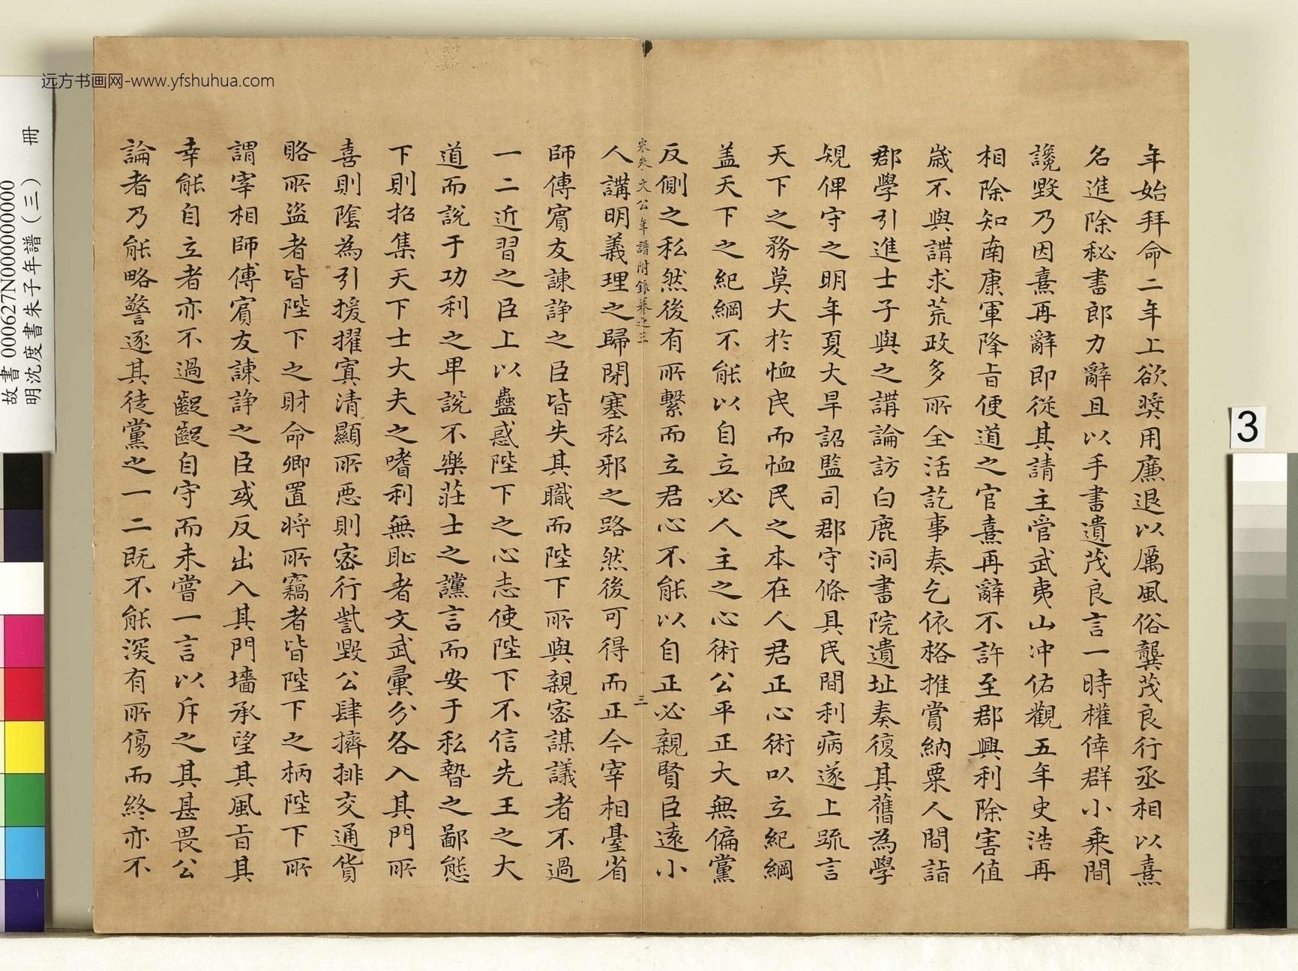 年始拜命二年上欲奨用廉退以厲風俗龔茂良行丞相以熹
名進除秘書郎力辭且以手書遺茂良言一時權倖群小乗間
讒毀乃因熹再辭即從其請主管武夷山冲佑觀五年史浩再
相除知南康軍降旨便道之官熹再辭不許至郡興利除害值
歳不與講求荒政多所全活訖事奏乞依格推賞納粟人間詣
郡學引進士子與之講論訪白鹿洞書院遺址奏復其舊為學
規俾守之明年夏大旱詔監司郡守條具民間利病遂上疏言
天下之務莫大扵恤民而恤民之本在人君正心術以立紀綱
盖天下之紀綱不能以自立必人主之心術公平正大無偏黨
反側之私然後有所繫而立君心不能以自正必親賢臣遠小
宋朱文公年譜附錄卷之三
三
人講明義理之歸閉塞私邪之路然後可得而正今宰相臺省
師傅賓友諫諍之臣皆失其職而陛下所與親密謀議者不過
一二近習之臣上以蠱惑陛下之心志使陛下不信先王之大
道而說于功利之卑說不樂莊士之讜言而安于私䙝之鄙態
下則招集天下士大夫之嗜利無恥者文武彙分各入其門所
喜則陰為引援擢寘清顯所惡則密行訾毀公肆擠排交通貨
賂所盜者皆陛下之財命卿置將所竊者皆陛下之柄陛下所
謂宰相師傅賓友諫諍之臣或反出入其門墻承望其風旨其
幸能自立者亦不過齪齪自守而未嘗一言以斥之其甚畏公
論者乃能略警逐其徒黨之一二既不能深有所傷而終亦不
故書000627N000000000
明沈度書朱子年譜(三) 冊
远方书画网-www.yfshuhua.com
3